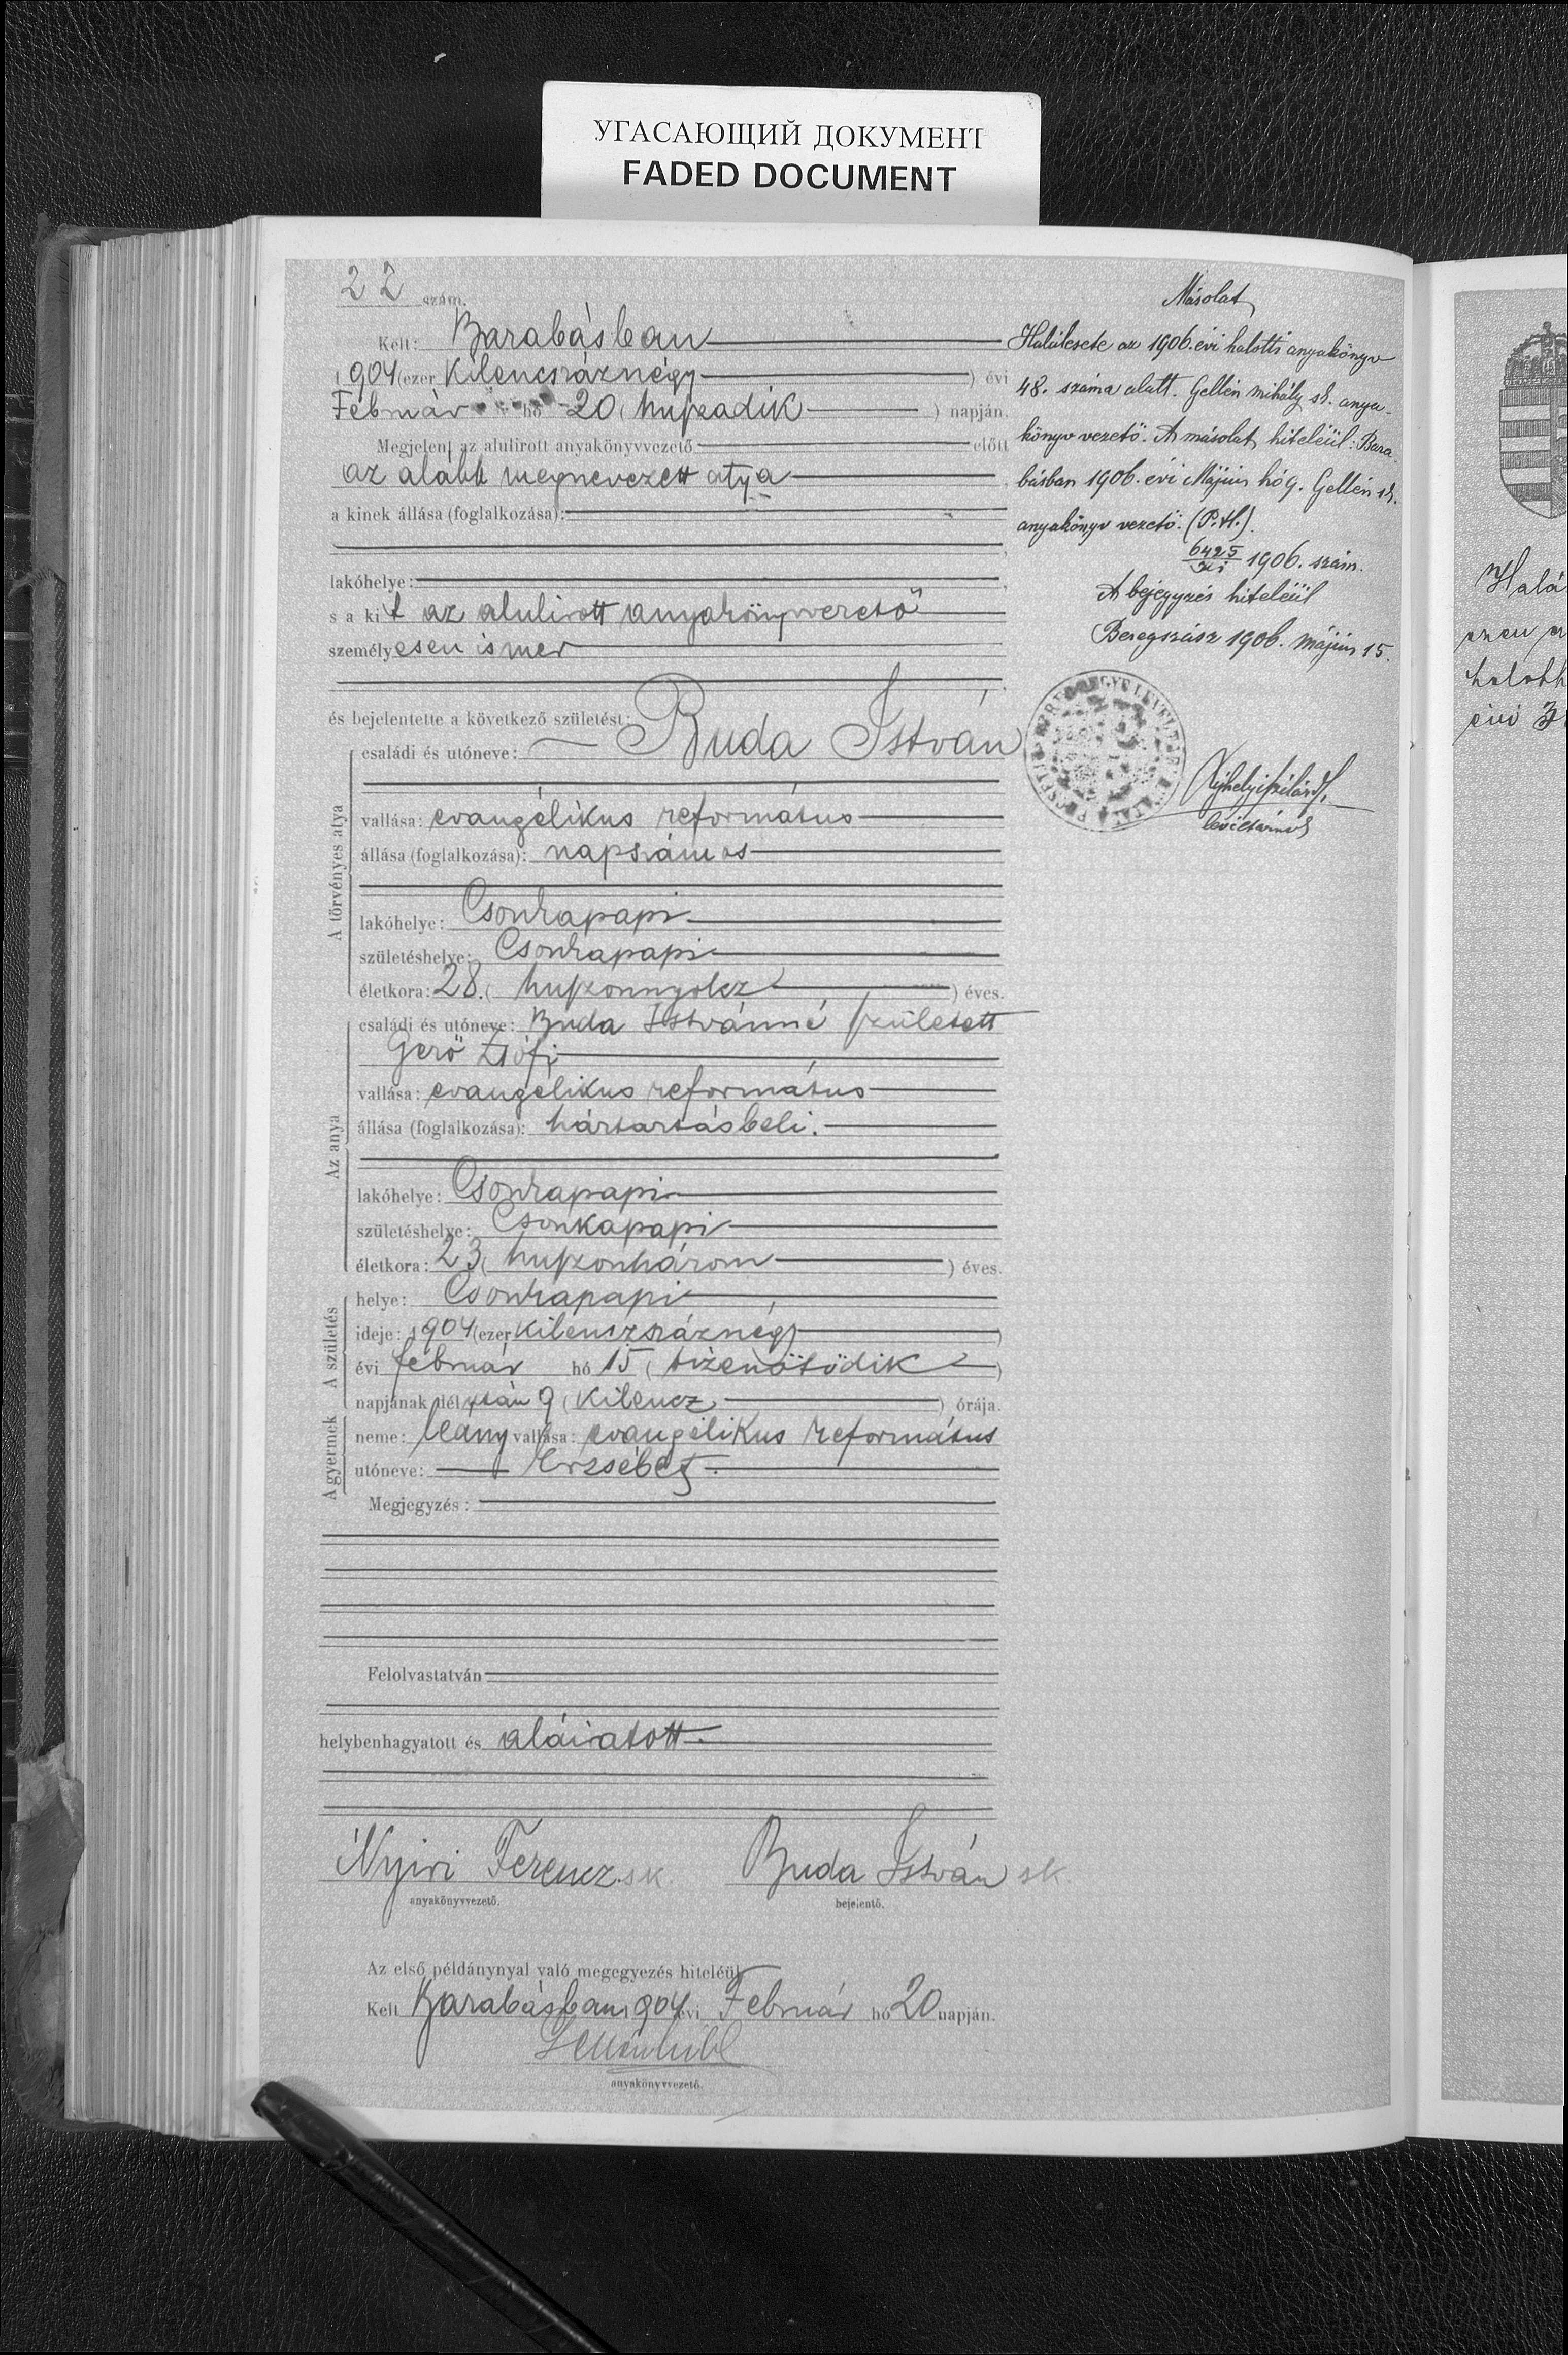 УГАСАЮЩИЙ ДОКУМЕНТ
FADED DOCUMENT
22 szám.
Kelt: Barabásban
1904 (ezer kilencszáznégy) évi
Február hó 20 (huszadik) napján.
Megjelent az alulirott anyakönyvvezető előtt
az alább megnevezett atya
a kinek állása (foglalkozása):
lakóhelye:
s a kit az alulirott anyakönyvvezető
személyesen ismer
és bejelentette a következő születést:
A törvényes atya
családi és utóneve: Buda István
vallása: evangélikus református
állása (foglalkozása): napszámos
lakóhelye: Csonkapapi
születéshelye: Csonkapapi
életkora: 28. (huszonnyolcz) éves.
Az anya
családi és utóneve: Buda Istvánné született
Gerö Zsófi
vallása: evangélikus református
állása (foglalkozása): háztartásbeli.
lakóhelye: Csonkapapi
születéshelye: Csonkapapi
életkora: 23 (huszonhárom) éves.
A születés
helye: Csonkapapi
ideje: 1904 (ezer kilenczszáznégy)
évi február hó 15 (tizenötödik)
napjának dél után 9 (kilencz) órája.
A gyermek
neme: leány vallása: evangélikus református
utóneve: Erzsébet.
Megjegyzés:
Felolvastatván
helybenhagyatott és aláiratott.
Nyiri Ferencz sk. Buda István sk.
anyakönyvvezető. bejelentő.
Az első példánynyal való megegyezés hiteléül
Kelt Barabásban 1904 évi Február hó 20 napján.
anyakönyvvezető.
Másolat
Halálesete az 1906. évi halotti anyakönyv
48. száma alatt. Gellén Mihály sk. anya-
könyv vezető. A másolat hiteléül: Bara-
básban 1906. évi Május hó 9. Gellén sk.
anyakönyv vezető. (P.H.).
6425 1906. szám.
A bejegyzés hiteléül
Beregszász 1906. május 15.
levéltárnok
Halá
ezen
évi